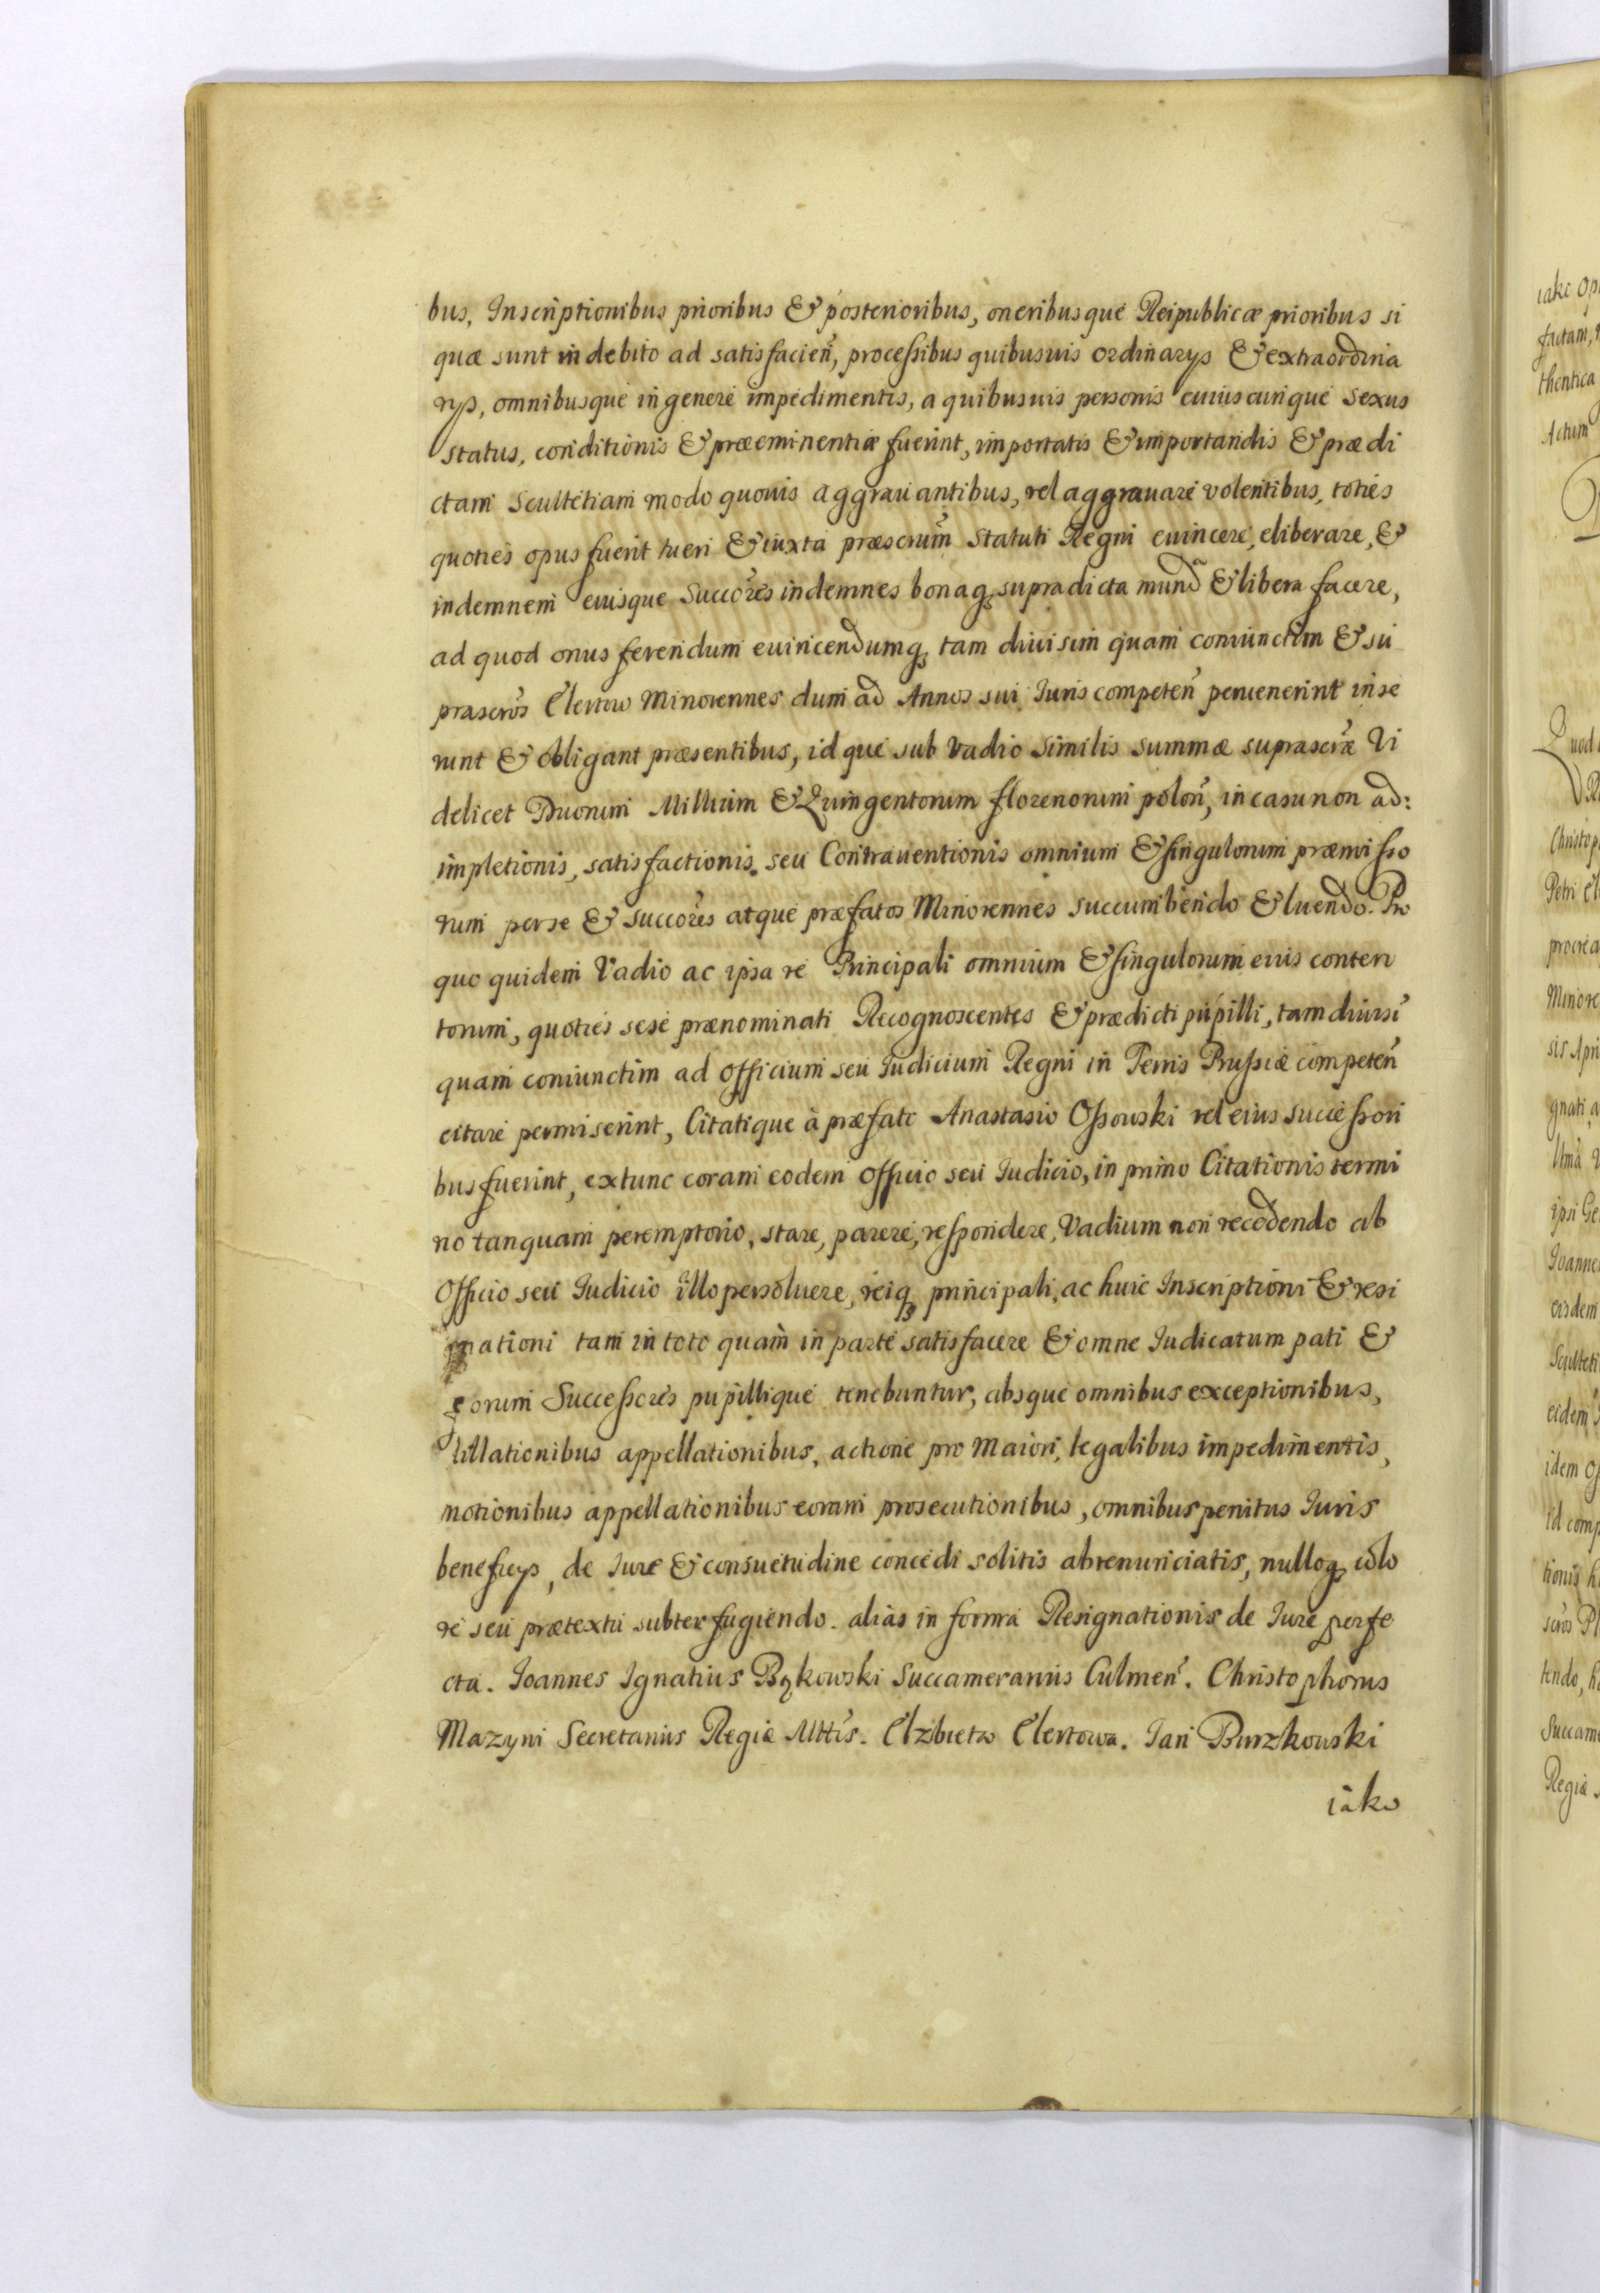 bus, Inscriptionibus prioribus & posterioribus, oneribusque Reipublicæ prioribus si
quæ sunt in debito ad satisfacień, processibus quibusuis ordinarys & extraordina
rys, omnibusque in genere impedimentis, a quibusuis personis cuiuscunque sexus
status, conditionis & præeminentiæ fuerint, importatis & importandis & prædi
ctam Scultetiam modo quouis aggrauantibus, vel aggrauare volentibus, toties
quoties opus fuerit tueri & iuxta præscrum̃ Statuti Regni euincere, eliberare, &
indemnem eiusque Succores̃ indemnes bonaq supradicta mund̃ & libera facere,
ad quod onus ferendum euincendumq tam diuisim quam coniunctim & su
prascros̃ Elertow Minorennes dum ad Annos sui Iuris competeñ peruenerint inse
runt & obligant præsentibus, idque sub Vadio similis summæ suprascræ̃ Vi
delicet Duorum Millium & Quingentorum florenorum poloñ, in casu non ad:
impletionis, satisfactionis seu Contrauentionis omnium & singulorum præmisso
rum per se & succores̃ atque præfatos Minorennes succumbendo & luendo. Pro
quo quidem Vadio ac ipsa re Principali omnium & singulorum eius conten
torum, quoties sese prænominati Recognoscentes & prædicti pupilli, tam diuisi̇̃
quam coniunctim ad Officium seu Iudicium Regni in Terris Prussiæ competeñ
citare permiserint, Citatique à præfato Anastasio Ossowski vel eius successori
bus fuerint, extunc coram eodem Officio seu Iudicio, in primo Citationis termi
no tanquam peremptorio, stare, parere, respondere, Vadium non recedendo ab
Officio seu Iudicio illo persoluere, reiq principali, ac huic Inscriptioni & resi
gnationi tam in toto quam in parte satisfacere & omne Iudicatum pati &
eorum Successores pupillique tenebuntur, absque omnibus exceptionibus,
dillationibus appellationibus, actione pro Maiori, legalibus impedimentis,
motionibus appellationibus eorum prosecutionibus, omnibus penitus Iuris
beneficys, de Iure & consuetudine concedi solitis abrenunciatis, nulloq colo
re seu prætextu subterfugiendo. alias in forma Resignationis de Iure perfe
cta. Joannes Ignatius Bąkowski Succamerarius Culmeñ. Christophorus
Mazyni Secretarius Regiæ Mttis̃. Elzbieta Elertowa. Jan Burzkowski
iako